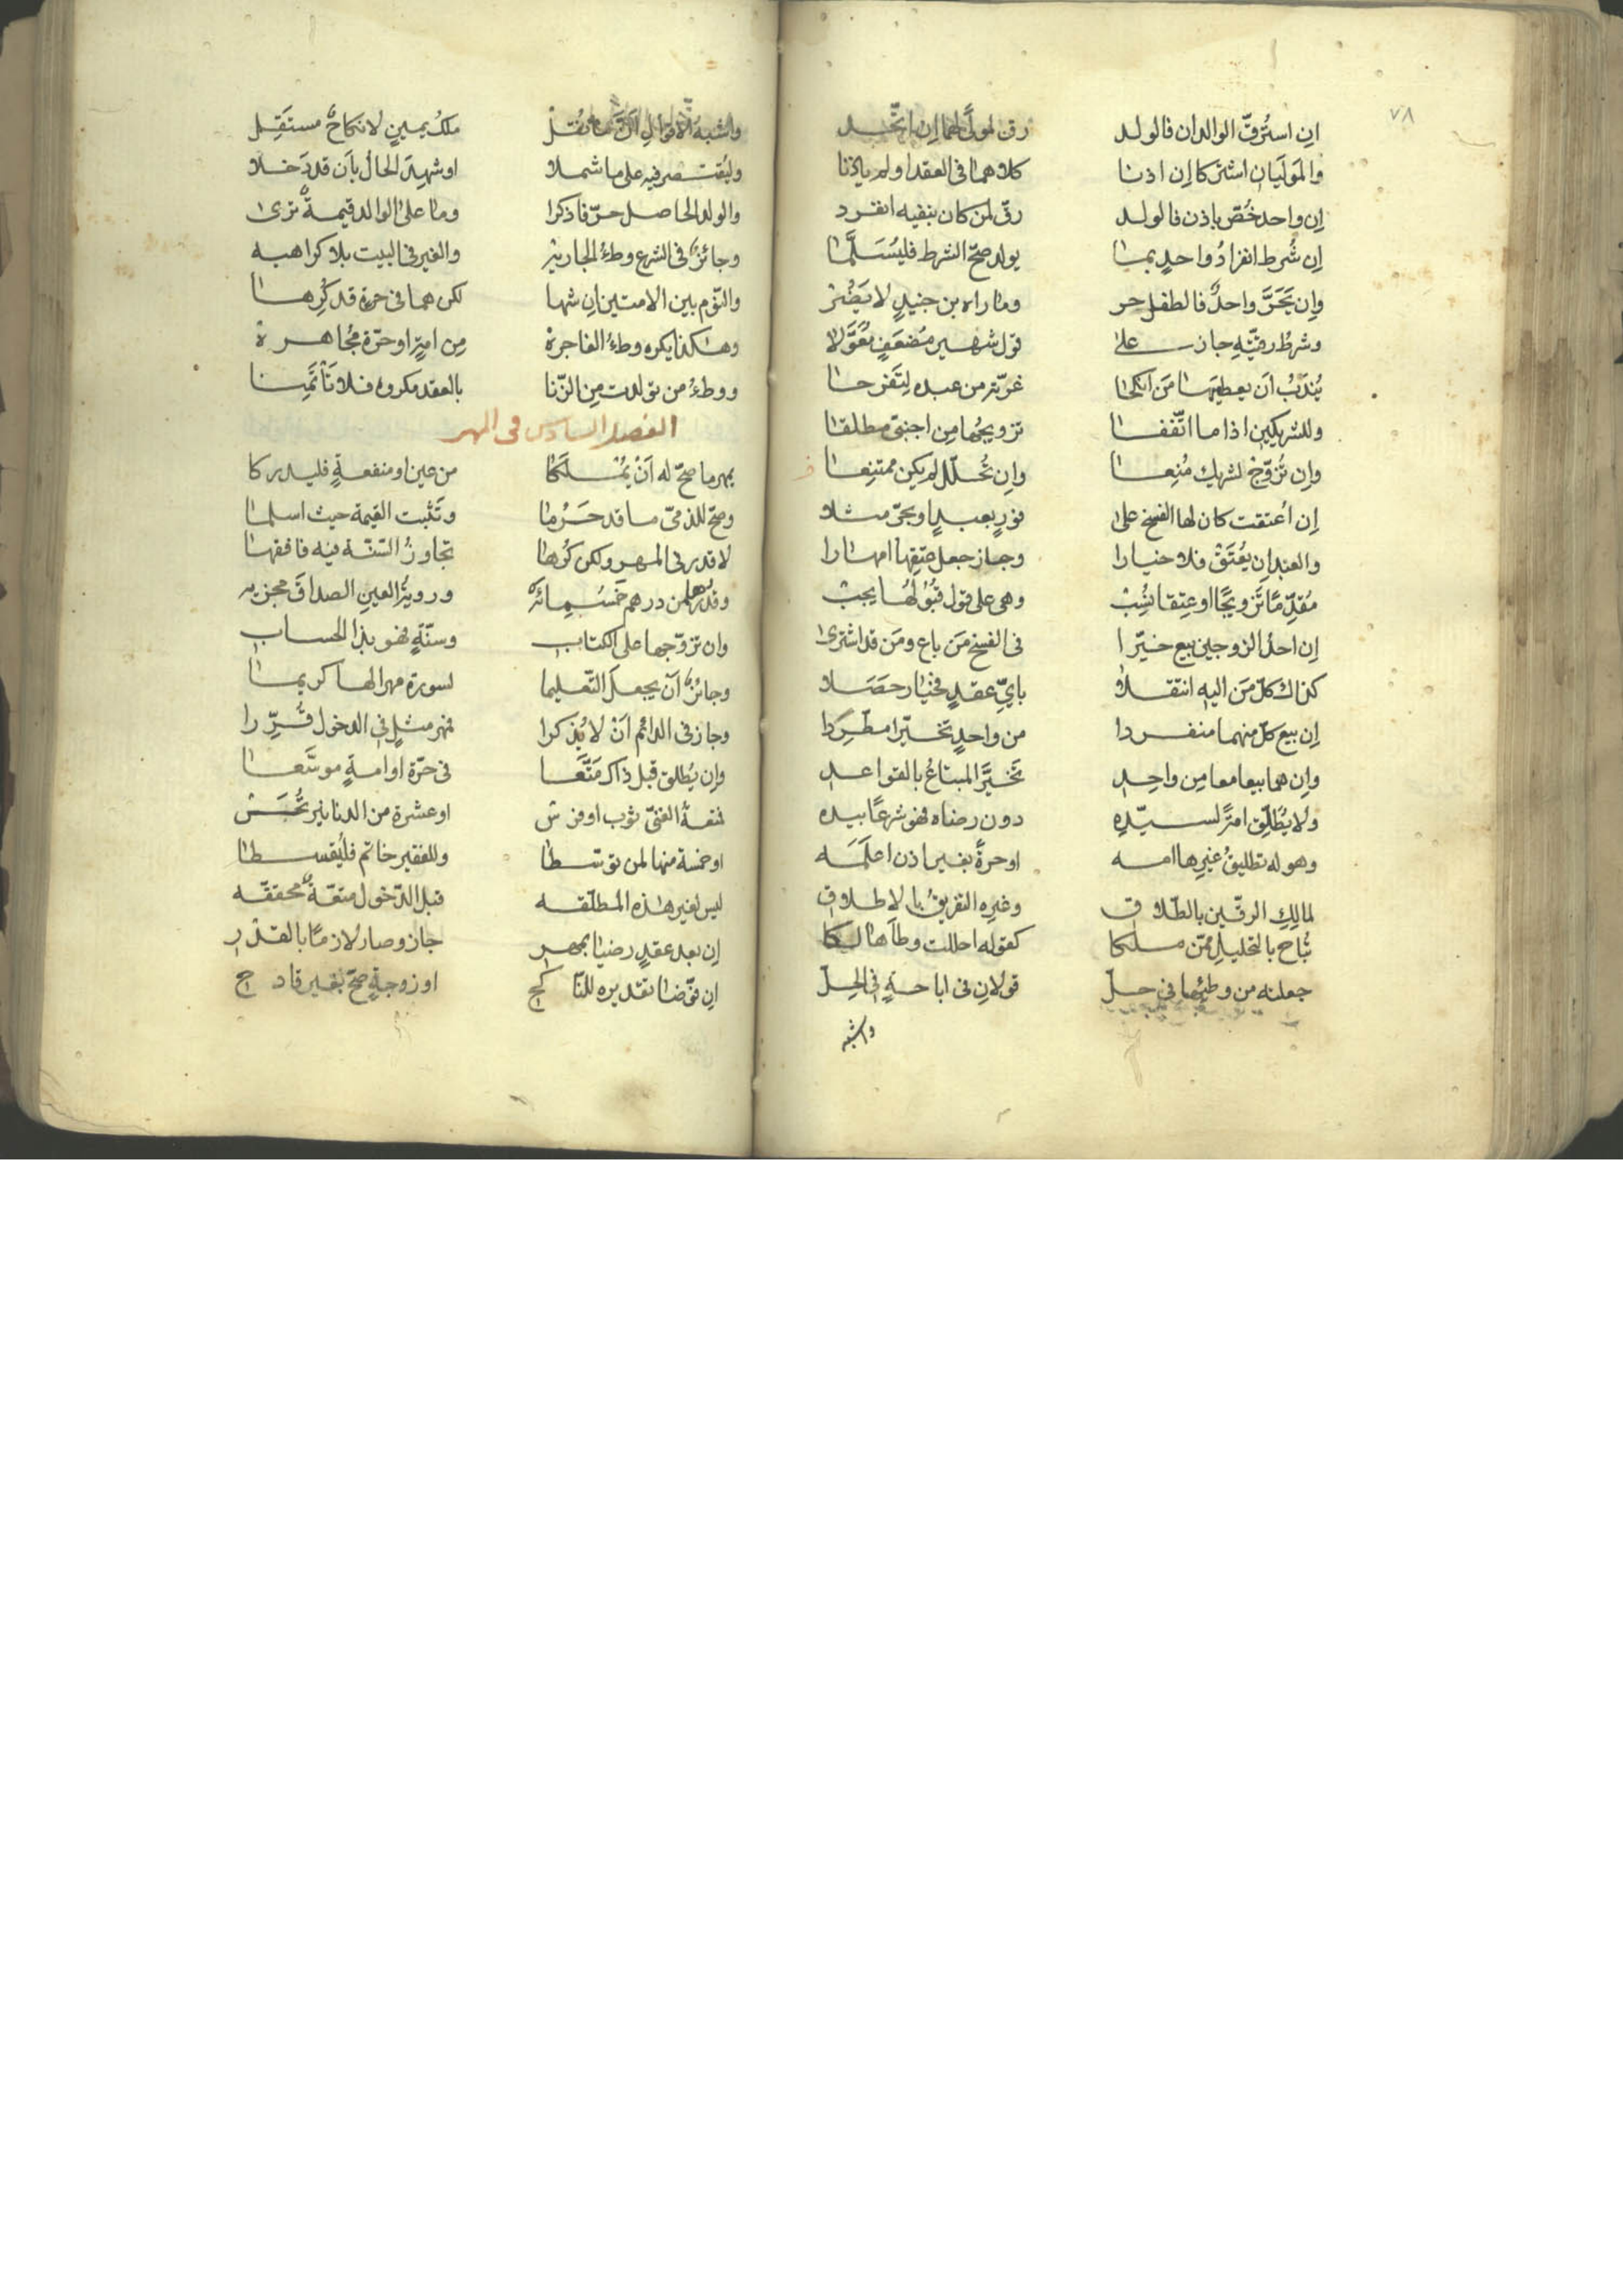 ٧٨
ان استرقّ الوالدان فالولد رق لمولى لهما إن اتّحد
والموليان اشتركا إن اذنا كلاهما فى العقد او لم ياذنا
إن واحد خُصّ باذن فالولد رقّ لمن كان بنفيه انفرد
إن شُرط انفرادُ واحدٍ بما يولد صحّ الشرط فليُسَلَّما
وإن تحرَّ واحدٌ فالطفل حر وما راه بن جنيدٍ لا يضُر
وشرطُ رقيّتهِ جاز على قول شهير مضعفٍ
يُندبُ أن يعطيها من انكحا من عبده لتفرحا
وللشريكين اذا ما اتّفقا تزويجُها من اجنبىّ مطلقا
وإن تُزوّج لشريك مُنِعا وإن تُحلّل لم يكن ممتنِعا
إن اُعتقت كان لها الفسخ على فورٍ بعبدٍ او بحرّ مثلا
والعبد إن يُعتَق فلا خيارا وجاز جعل عتقها امهارا
مُقدّمًا تزويجًا او عتقا نُسِب وهى على قول قبُولُها يجب
إن احد الزوجين بيع خيّرا فى الفسخ مَن باع ومَن قد اشترى
كذاك كلّ مَن اليه انتقلا بايّ عقدٍ فخيار حصلا
إن بيع كلّ منهما منفردا من واحدٍ تخيّرا مطّرِدا
وإن هما بيعا معا مِن واحِدِ تخيَّرَ المبتاعُ بالقواعد
ولا يُطلّق امةً لسيّدِه دون رضاه فهو شرعًا بيده
وهو له تطليقُ غيرها امه او حرةً بغير اذن اعلمَه
لمالِكِ الرقّين بالطّلاق وغيره التفريقُ بالاطلاق
تُباح بالتحليلِ ممّن ملكا كقوله احللت وطأها لكا
جعلته من وطئها فى حلّ قولانِ فى اباحةٍ فى الحِلّ
واشبه
واشبهُ الاقوالِ ملكُ يمينٍ لا نكاحٌ مستقِل
وليُقتصر فيه على ما شملا او شهِدَ الحالُ بأن قد دخلا
والولد الحاصل حرّ فاذكرا وما على الوالد قيمةٌ ترى
وجائزٌ فى الشرع وطءُ الجاريه والغير فى البيت بلا كراهيه
والنّوم بين الامتين إن شها لكن هما فى حرة قد كُرِها
وهكذا يكره وطءُ الفاجرة مِن امةٍ او حرّة مُجاهرة
ووطءُ من تولدت مِن الزّنا بالعقد مكروه فلا تأتمِنا
الفصل السادس فى المهر
يمهر ما صحّ له أن يُملَكا من عين او منفعةٍ فليدركا
وصحّ للذمىّ ما قد حَرُما وتَثبت القيمة حيث اسلما
لا قدر فى المهر ولكن كُرها تجاوزُ السّنّة فيه فافقها
وقدرُها من درهم خمسُمائه ورويةُ العينِ الصداقَ مجزيه
وان تزوّجها على الكتاب وسنّةٍ فهو بذا الحساب
وجائزٌ أن يجعلَ التّعليما لسورة مهرا لها كريما
وجاز فى الدائم أنْ لا يُذكرا فمهر مثلٍ فى الدخول قُرّرا
وإن يُطلق قبل ذاك مَتّعا فى حرّة او امةٍ موسّعا
متعةُ الغنىّ ثوب او فرش او عشرة من الدنانير
او خمسة منها لمن توسّطا وللفقير خاتم فليُقسطا
ليس لغير هذه المطلّقه قبل الدّخول متعةٌ محققّه
إن بعد عقدٍ رضيا بمهر جاز وصار لازمًا بالقدر
إن فوّضا تقديره للنّاكح او زوجةٍ صحّ بغير قادح